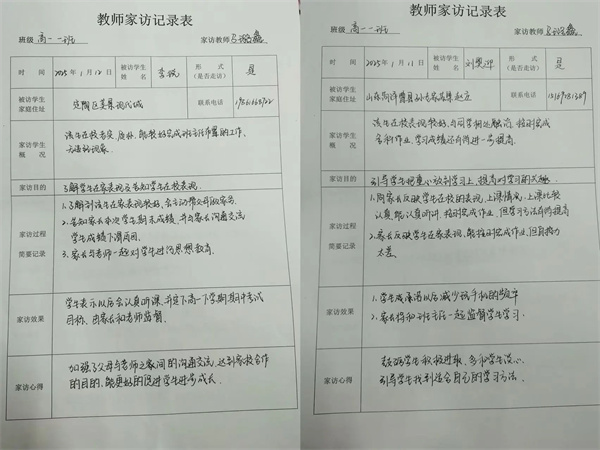 教师家访记录表
班级 高一一班 家访教师
时间 2025年1月12日 被访学生姓名 李 形式（是否走访） 是
被访学生家庭住址 现代城 联系电话
家访学生概况 该生在校表现良好，能较好完成班主任布置的工作，
家访目的 了解学生在家表现及告知学生在校表现。
家访过程简要记录 1.了解到该生在家表现较好，会主动帮父母做家务。
2.告知家长本次学生期末成绩，并与家长沟通交流
学生成绩下滑原因。
3.家长与老师一起对学生进行思想教育。
家访效果 学生表示以后会认真听课，并定下高一下学期期中考试
目标，由家长和老师监督。
家访心得 加强了父母与老师之家间的沟通交流，达到家校合作
的目的，能更好的促进学生进步成长。
教师家访记录表
班级 高一一班 家访教师
时间 2025年1月11日 被访学生姓名 刘 形式（是否走访） 是
被访学生家庭住址 山东菏泽 联系电话
家访学生概况 该生在校表现较好，与同学相处融洽，按时完成
各科作业，学习成绩还有待进一步提高。
家访目的 引导学生把重心放到学习上，提高对学习的兴趣。
家访过程简要记录 1.向家长反映学生在校的表现，上课情况，上课比较
认真，能认真听讲，按时完成作业，但学习方法有待提高
2.家长反映学生在家表现，能按时完成作业，但自制力
太差。
家访效果 1.学生成承诺以后减少玩手机的频率
2.家长将和班主任一起监督学生学习.
家访心得 鼓励学生积极进取，多和学生谈心，
引导学生找到适合自己的学习方法.